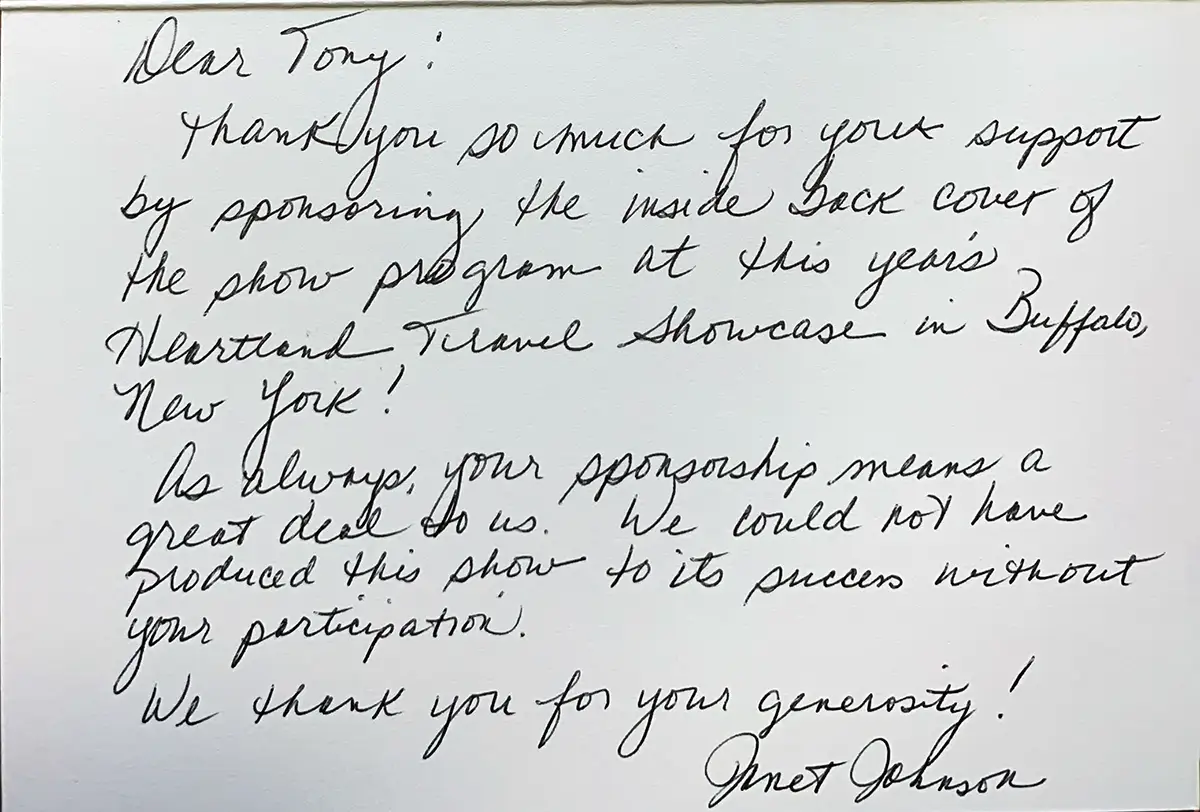 Dear Tony:
Thank you so much for your support
by sponsoring the inside back cover of
the show program at this year's
Heartland Travel Showcase in Buffalo,
New York!
As always, your sponsorship means a
great deal to us. We could not have
produced this show to its success without
your participation.
We thank you for your generosity!
Janet Johnson